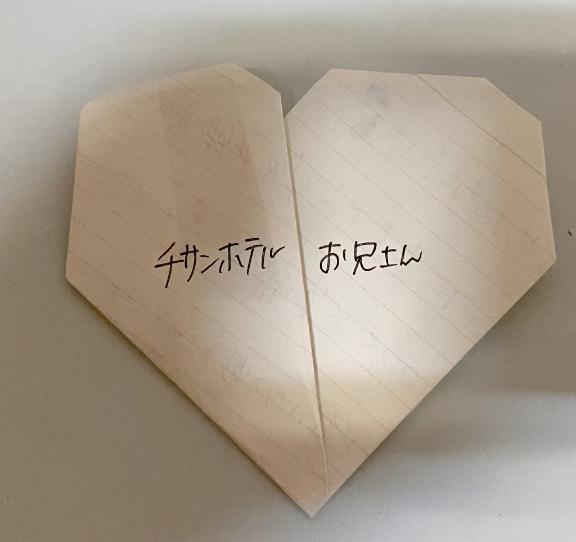 チサンホテル お兄さん